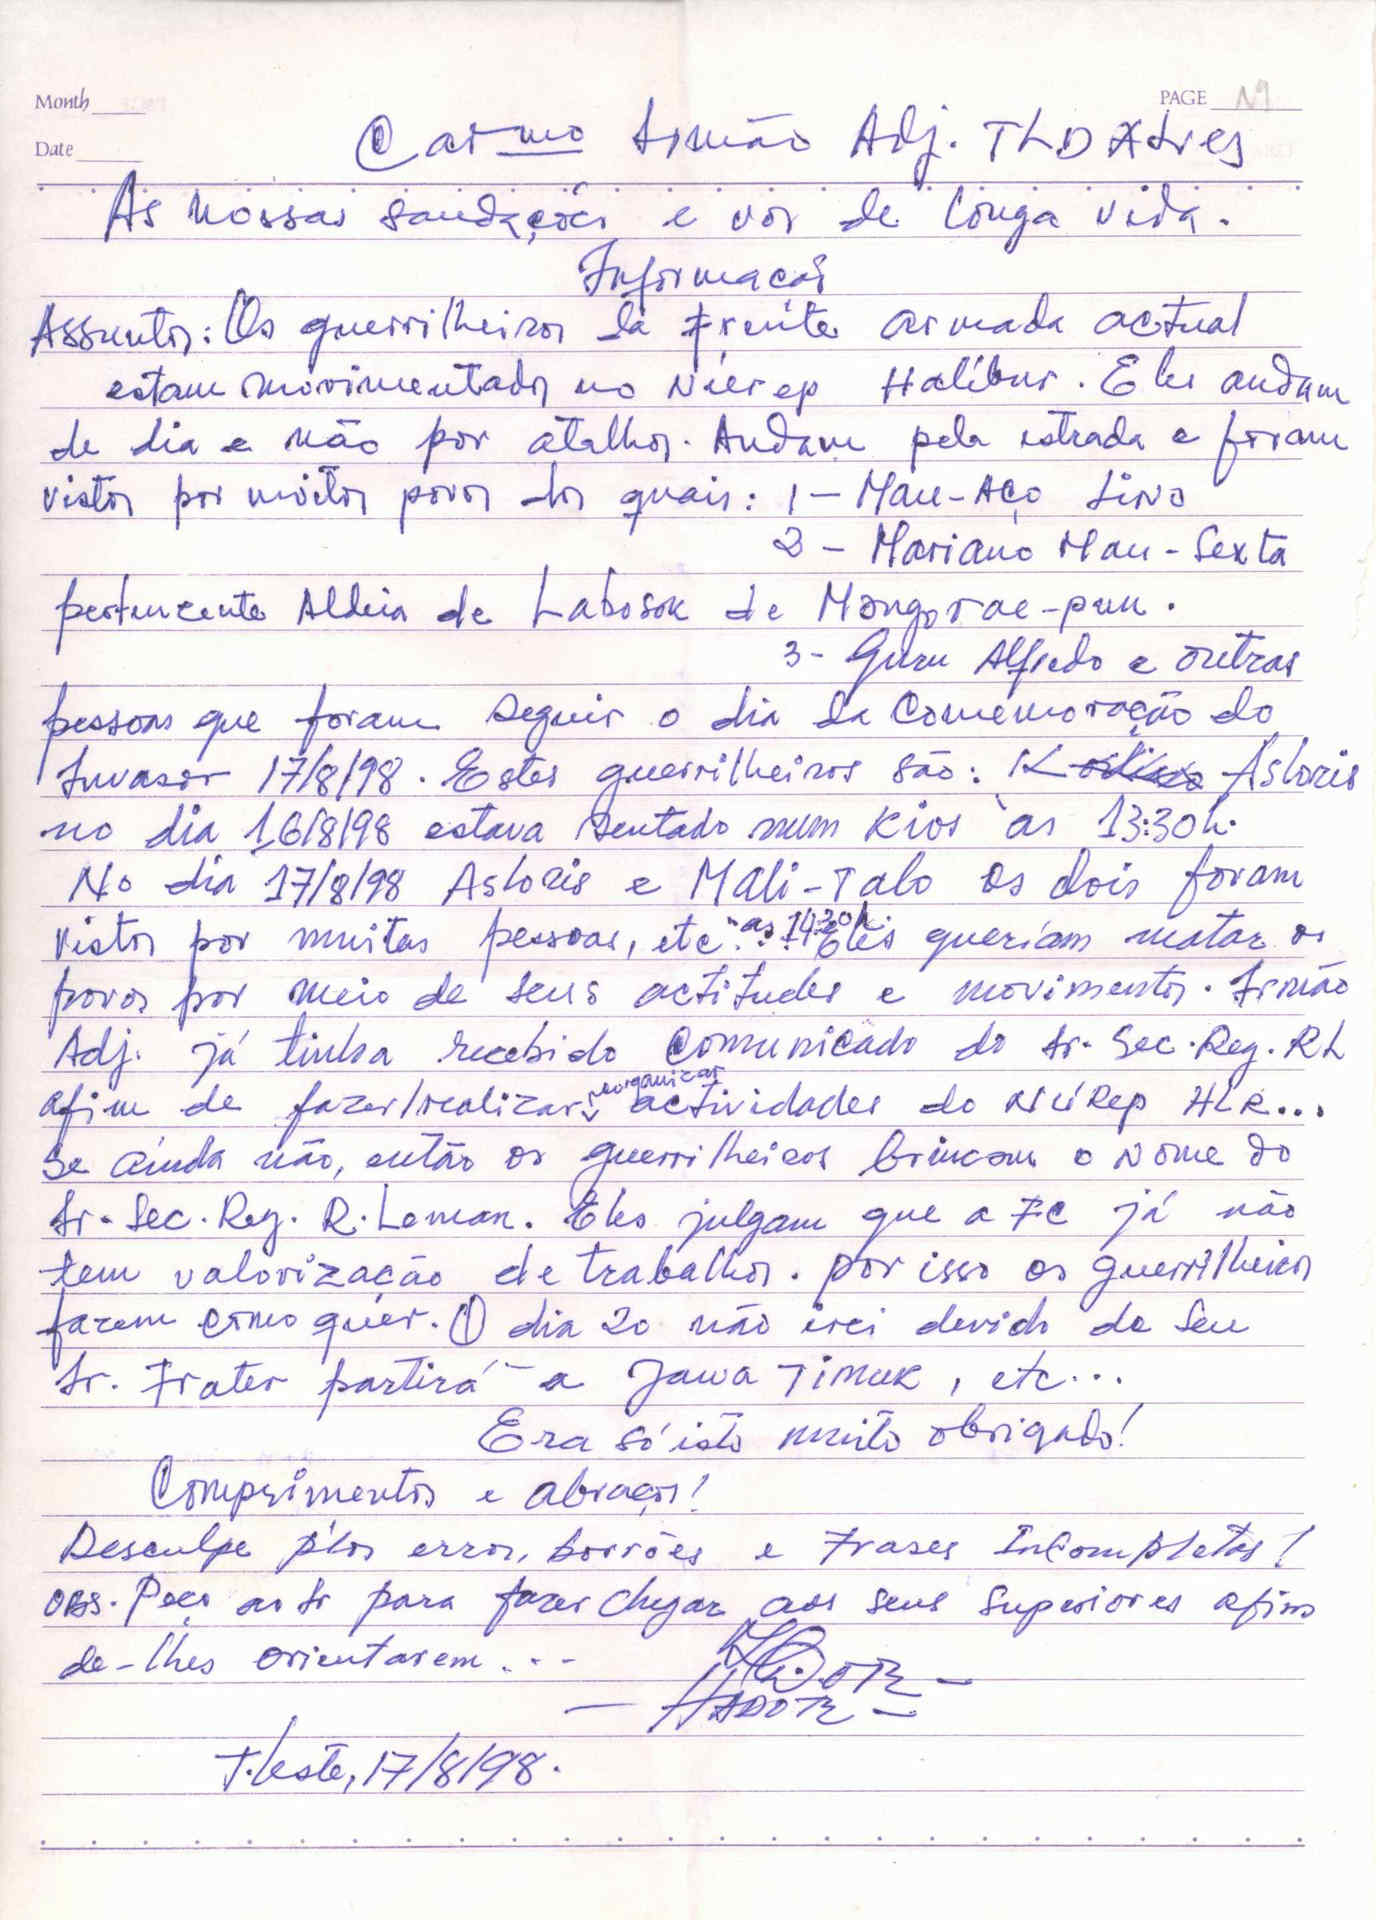 Month
PAGE Nº
Date
Carmo Irmão Adj. TLD Alves
As nossas saudações e vos de longa vida.
Informação
Assuntos: Os guerrilheiros da frente armada actual
estam movimentados no Núrep Halibur. Eles andam
de dia e não por atalhos. Andam pela estrada e foram
vistos por muitos povos dos quais: 1 - Mau-Aço Lino
2 - Mariano Mau-Sexta
pertencente Aldeia de Labosok de
3 - Guru Alfredo e outras
pessoas que foram seguir o dia da Comemoração do
Invasor 17/8/98. Estes guerrilheiros são: Asloris
no dia 16/8/98 estava sentado num Kios às 13:30h.
No dia 17/8/98 Asloris e Mali-Talo os dois foram
vistos por muitas pessoas, etc... as 14:30h Eles queriam matar os
povos por meio de seus actitudes e movimentos. Irmão
Adj. já tinha recebido comunicado do Sr. Sec. Reg. RL
afim de fazer/realizar reorganizar actividades do Núrep HLR...
Se ainda não, então os guerrilheiros brincam o nome do
Sr. Sec. Reg. R. Leman. Eles julgam que a FC já não
tem valorização de trabalhos. por isso os guerrilheiros
fazem como quer. O dia 20 não irei devido de Seu
Sr. Frater partirá a Jawa Timuk, etc...
Era só isto muito obrigado!
Comprimentos e abraços!
Desculpe p'los erros, borrões e frases Incompletas!
OBS. Peço ao Sr para fazer chegar aos seus Superiores afim
de-lhes orientarem...
T. Leste, 17/8/98.